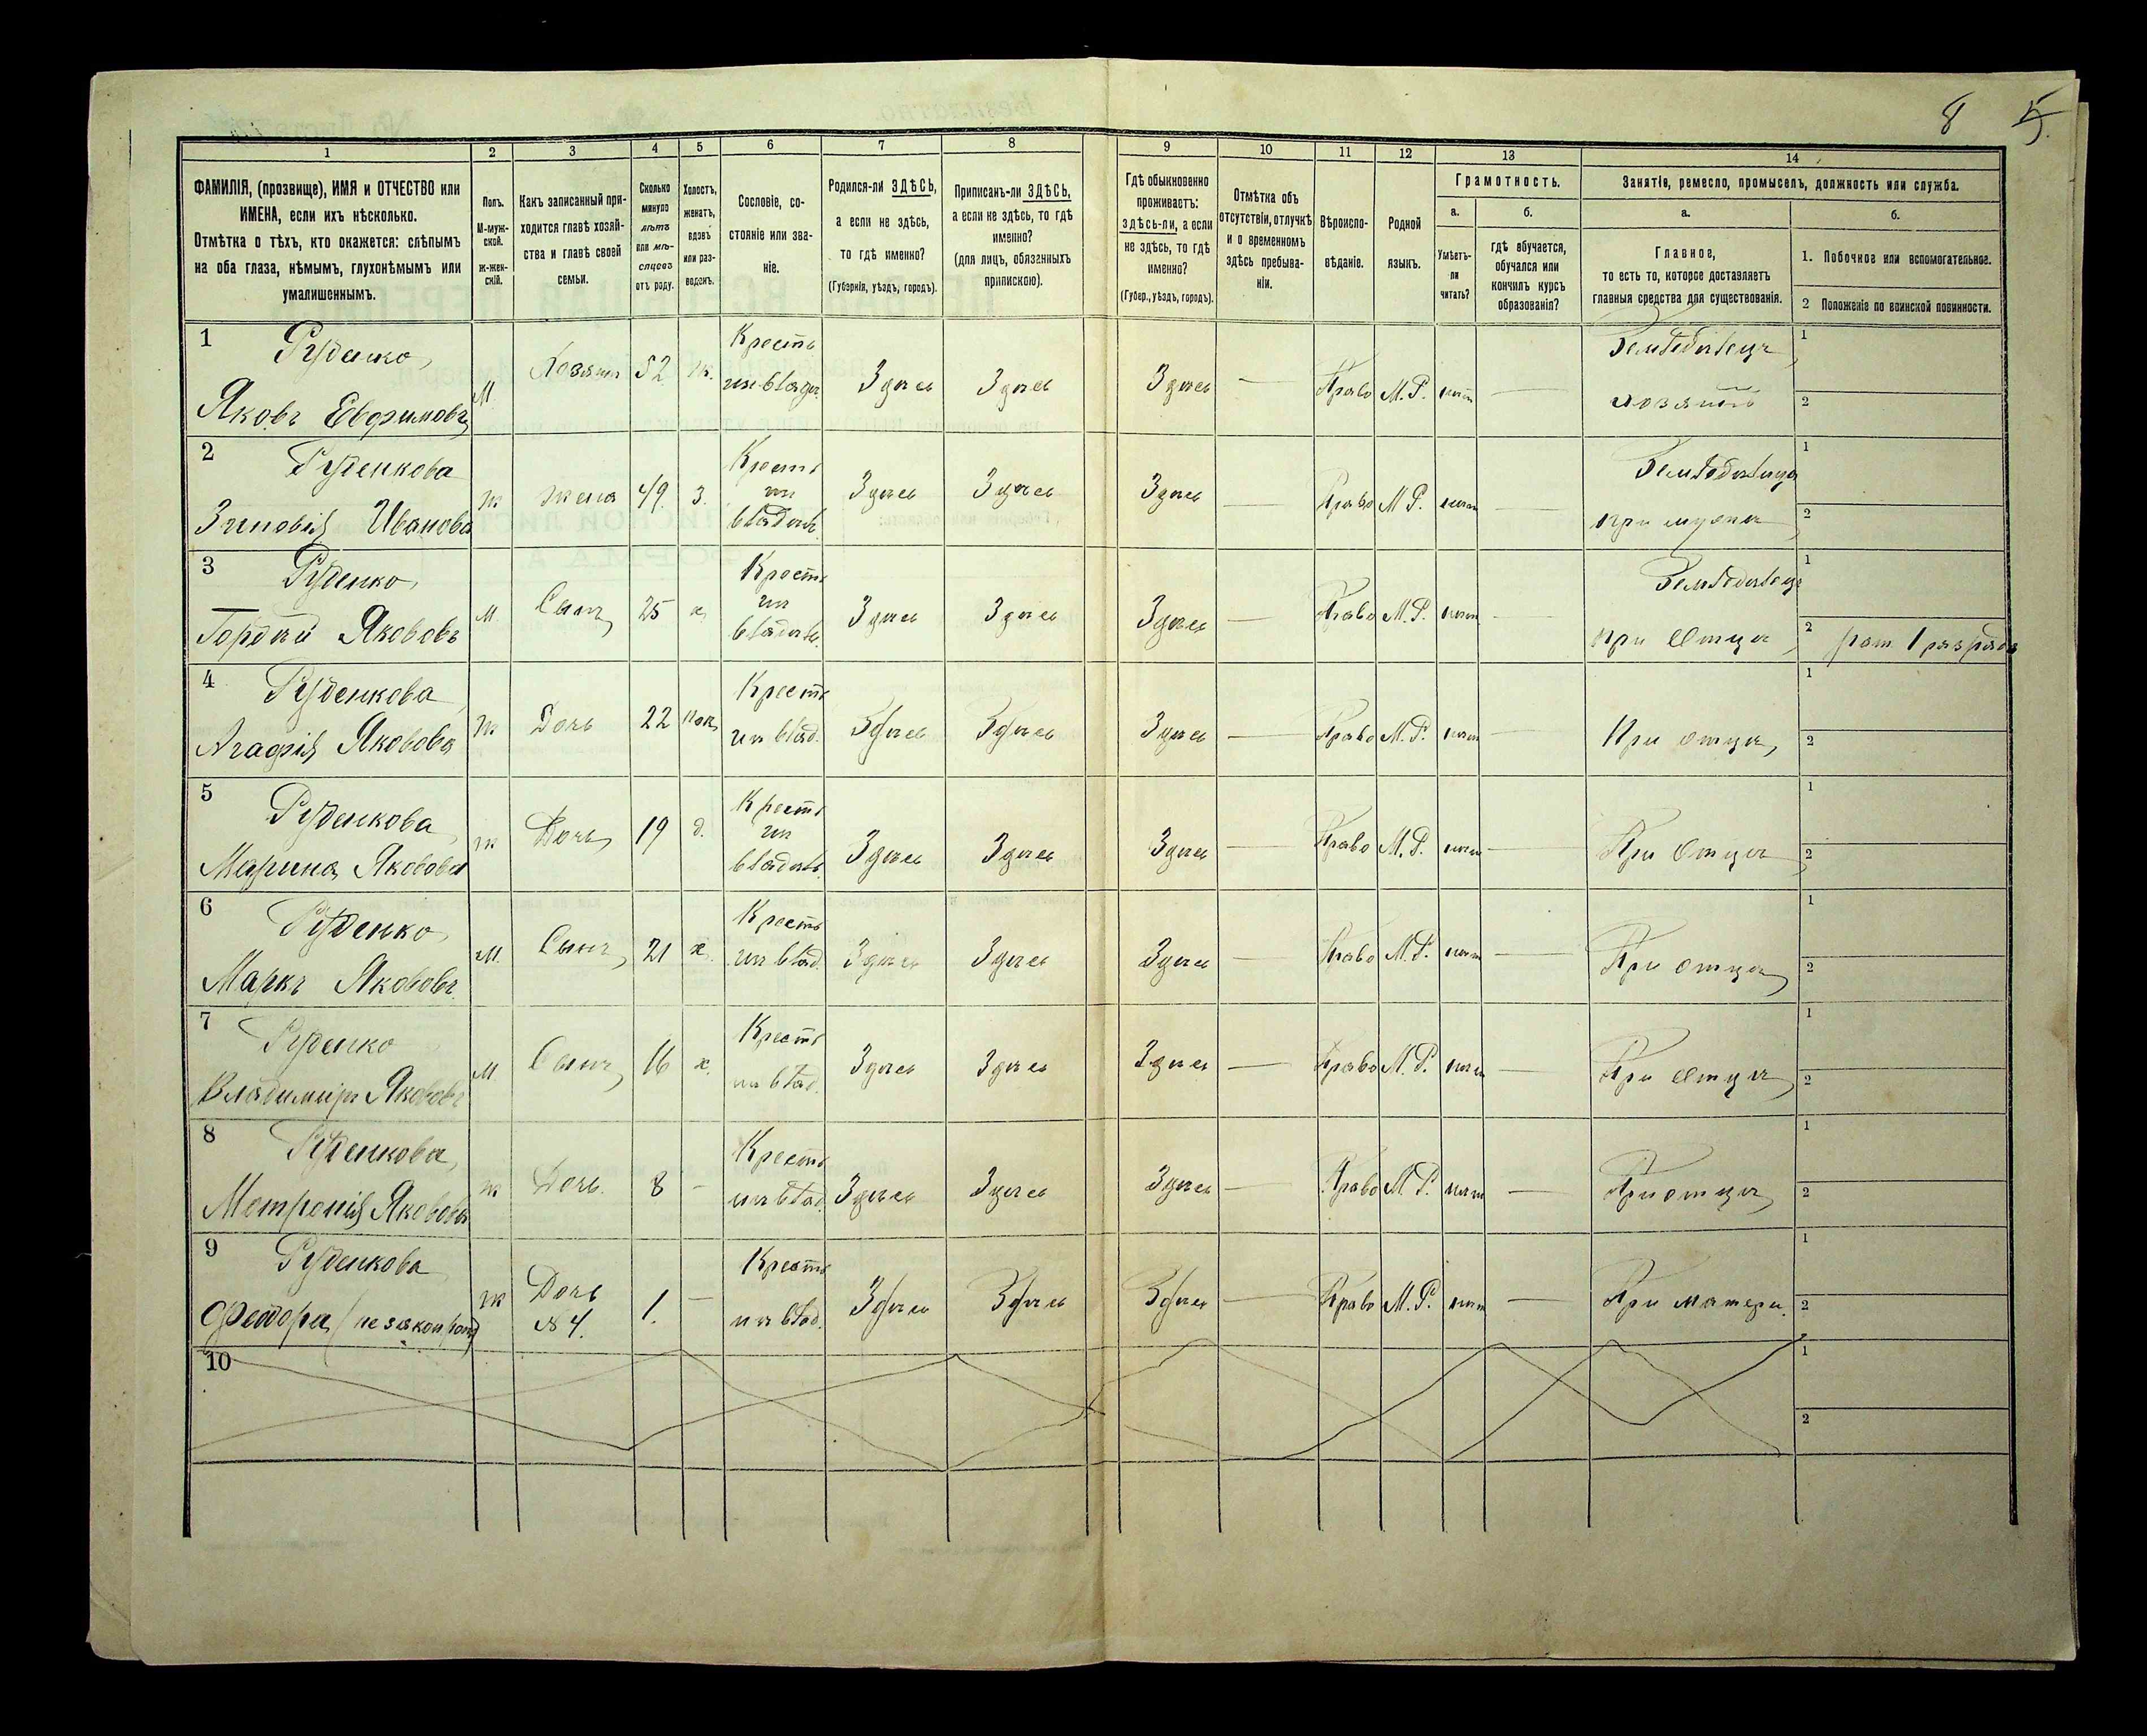 8 5.
1
2
3
4
5
6
7
8
9
10
11
12
13
14
ФАМИЛІЯ, (прозвище), ИМЯ и ОТЧЕСТВО или
ИМЕНА, если ихъ нѣсколько.
Отмѣтка о тѣхъ, кто окажется: слѣпымъ
на оба глаза, нѣмымъ, глухонѣмымъ или
умалишеннымъ.
Полъ.
М-муж-
ской.
ж-жен-
скій.
Какъ записанный при-
ходится главѣ хозяй-
ства и главѣ своей
семьи.
Сколько
минуло
лѣтъ
или мѣ-
сяцевъ
отъ роду.
Холостъ,
женатъ,
вдовъ
или раз-
веденъ.
Сословіе, со-
стояніе или зва-
ніе.
Родился-ли ЗДѢСЬ,
а если не здѣсь,
то гдѣ именно?
(Губернія, уѣздъ, городъ).
Приписанъ-ли ЗДѢСЬ,
а если не здѣсь, то гдѣ
именно?
(для лицъ, обязанныхъ
припискою).
Гдѣ обыкновенно
проживаетъ:
здѣсь-ли, а если
не здѣсь, то гдѣ
именно?
(Губер., уѣздъ, городъ).
Отмѣтка объ
отсутствіи, отлучкѣ
и о временномъ
здѣсь пребыва-
ніи.
Вѣроиспо-
вѣданіе.
Родной
языкъ.
Грамотность.
а.
Умѣетъ-
ли
читать?
б.
гдѣ обучается,
обучался или
кончилъ курсъ
образованія?
Занятіе, ремесло, промыселъ, должность или служба.
а.
Главное,
то есть то, которое доставляетъ
главныя средства для существованія.
б.
1. Побочное или вспомогательное.
2 Положеніе по воинской повинности.
1 Руденко,
Яковъ Евфимовъ
М. Хозяинъ 52 ж. Крестъ
из владѣ. Здѣсь Здѣсь Здѣсь — Право М.Р. нѣтъ — Земледѣлецъ
хозяинъ
1
2
2 Руденкова
Зиновія Иванова
ж жена 49 з. Крестъ
из
владѣль. Здѣсь Здѣсь Здѣсь — Право М.Р. нѣтъ — Земледѣлица
при мужѣ
1
2
3 Руденко,
Гордѣй Якововъ
М Сынъ 25 х Крестъ
из
владѣль. Здѣсь Здѣсь Здѣсь — Право М.Р. нѣтъ — Земледѣлецъ
при Отцѣ
1
2 рат. 1 разряда
4 Руденкова
Агафія Яковова
ж Дочь 22 пок. Крестъ
из влад. Здѣсь Здѣсь Здѣсь — Право М.Р. нѣтъ — При отцѣ,
1
2
5 Руденкова
Марина Яковова
ж Дочь 19 д. Крестъ
из
владѣль. Здѣсь Здѣсь Здѣсь — Право М.Р. нѣтъ — При Отцѣ
1
2
6 Руденко,
Маркъ Якововъ
М. Сынъ 21 х. Крестъ
из влад. Здѣсь Здѣсь Здѣсь — Право М.Р. нѣтъ — При отцѣ
1
2
7 Руденко
Владимиръ Якововъ
М Сынъ 16 х. Крестъ
из влад. Здѣсь Здѣсь Здѣсь — Право М.Р. нѣтъ — При Отцѣ
1
2
8 Руденкова,
Мотронія Яковова
ж Дочь. 8 — Крестъ
из влад. Здѣсь Здѣсь Здѣсь — Право М.Р. нѣтъ — При отцѣ
1
2
9 Руденкова
Феодора (незаконрож)
ж Дочь
№ 4. 1. — Крестъ
из влад. Здѣсь Здѣсь Здѣсь — Право М.Р. нѣтъ — При матери.
1
2
10
1
2